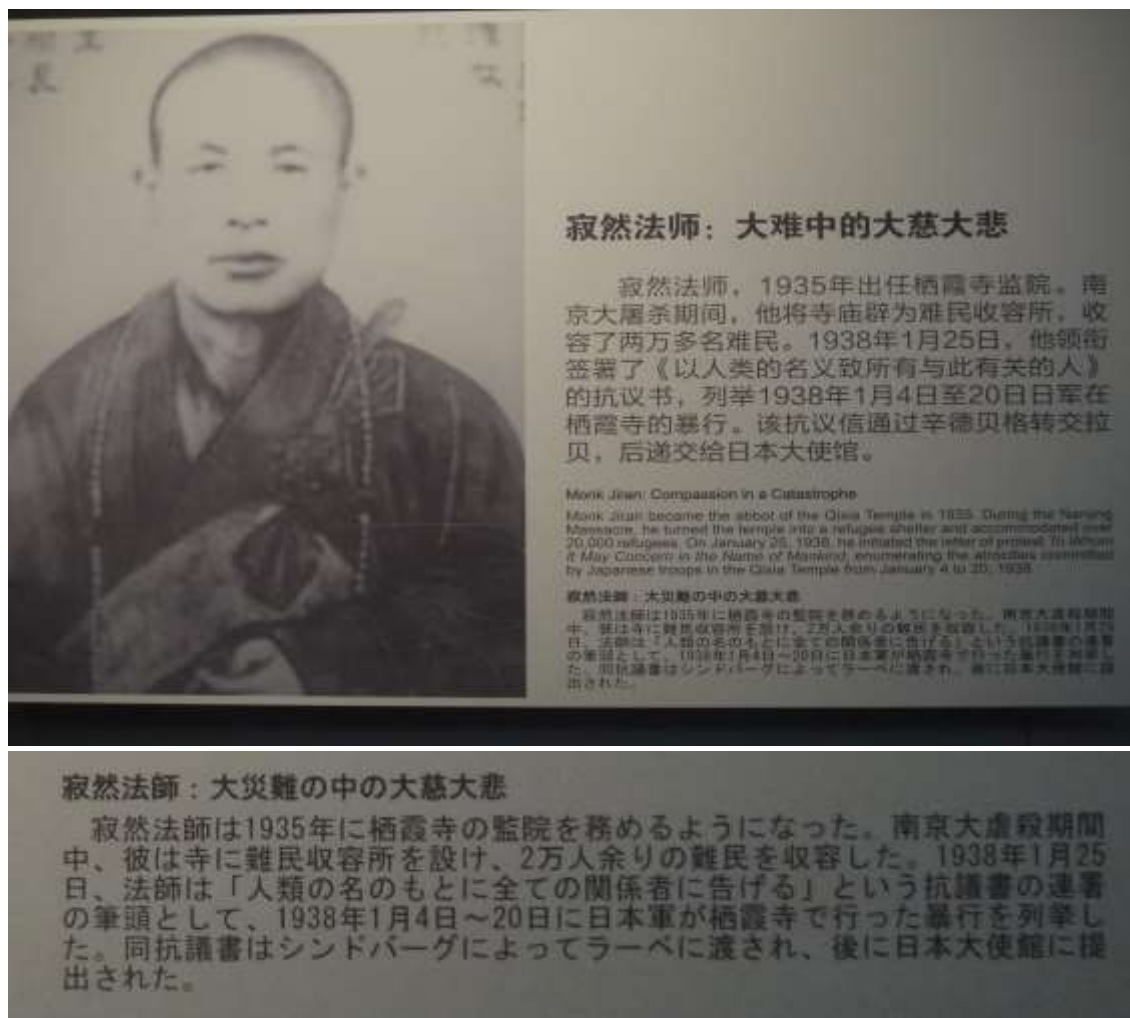 寂然法师：大难中的大慈大悲
寂然法师，1935年出任栖霞寺监院。南
京大屠杀期间，他将寺庙辟为难民收容所，收
容了两万多名难民。1938年1月25日，他领衔
签署了《以人类的名义致所有与此有关的人》
的抗议书，列举1938年1月4日至20日日军在
栖霞寺的暴行。该抗议信通过辛德贝格转交拉
贝，后递交给日本大使馆。
Monk Jiran: Compassion in a Catastrophe
Monk Jiran became the abbot of the Qixia Temple in 1935. During the Nanjing
Massacre, he turned the temple into a refugee shelter and accommodated over
20,000 refugees. On January 25, 1938, he initiated the letter of protest To Whom
It May Concern in the Name of Mankind, enumerating the atrocities committed
by Japanese troops in the Qixia Temple from January 4 to 20, 1938.
寂然法師：大災難の中の大慈大悲
寂然法師は1935年に栖霞寺の監院を務めるようになった。南京大虐殺期間
中、彼は寺に難民収容所を設け、2万人余りの難民を収容した。1938年1月25
日、法師は「人類の名のもとに全ての関係者に告げる」という抗議書の連署
の筆頭として、1938年1月4日～20日に日本軍が栖霞寺で行った暴行を列挙し
た。同抗議書はシンドバーグによってラーベに渡され、後に日本大使館に提
出された。
寂然法師：大災難の中の大慈大悲
寂然法師は1935年に栖霞寺の監院を務めるようになった。南京大虐殺期間
中、彼は寺に難民収容所を設け、2万人余りの難民を収容した。1938年1月25
日、法師は「人類の名のもとに全ての関係者に告げる」という抗議書の連署
の筆頭として、1938年1月4日～20日に日本軍が栖霞寺で行った暴行を列挙し
た。同抗議書はシンドバーグによってラーベに渡され、後に日本大使館に提
出された。